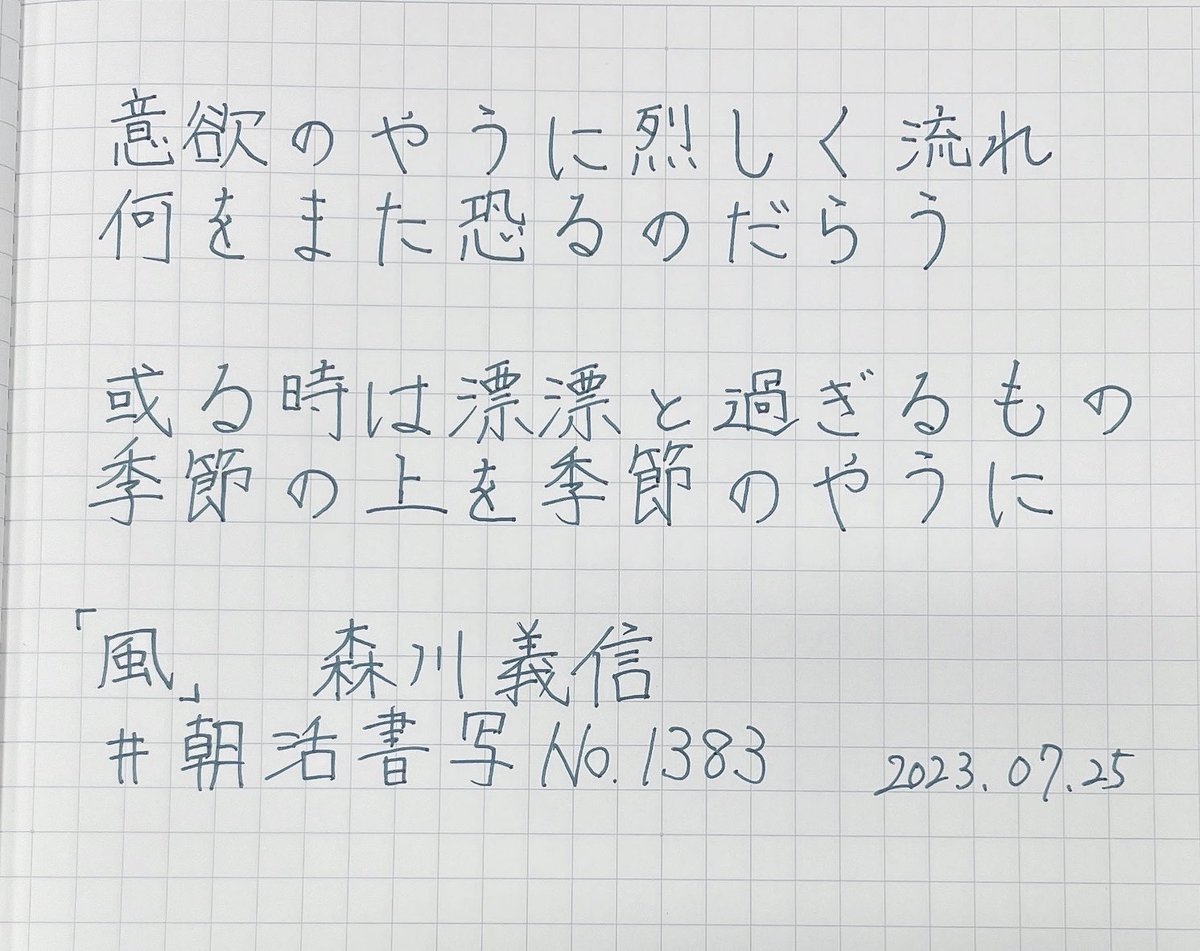 意欲のやうに烈しく流れ
何をまた恐るのだらう
或る時は漂漂と過ぎるもの
季節の上を季節のやうに
「風」 森川義信
#朝活書写No.1383 2023.07.25